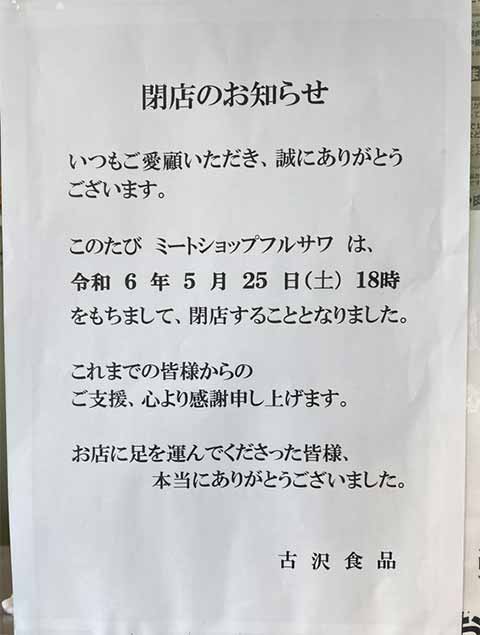 閉店のお知らせ
いつもご愛顧いただき、誠にありがとう
ございます。
このたび ミートショップフルサワ は、
令和 6 年 5 月 25 日(土) 18時
をもちまして、閉店することとなりました。
これまでの皆様からの
ご支援、心より感謝申し上げます。
お店に足を運んでくださった皆様、
本当にありがとうございました。
古沢食品